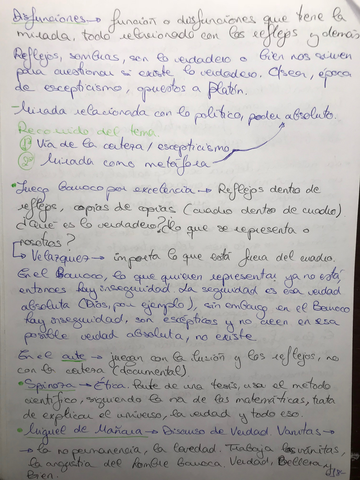 Disfunciones → función o disfunciones que tiene la
mirada, todo relacionado con los reflejos y demás
Reflejos, sombras, son lo verdadero o bien nos sirven
para cuestionar si existe lo verdadero. época
de escepticismo, opuestos a Platón.
- Mirada relacionada con lo político, poder absoluto.
Recorrido del tema
1º Vía de la certeza / escepticismo
2º Mirada como metáfora
• Juego barroco por excelencia → Reflejos dentro de
reflejos, copias de copias (cuadro dentro de cuadro)
¿Qué es lo verdadero? ¿lo que se representa o
nosotros?
↳ Velázquez → importa lo que está fuera del cuadro.
En el Barroco, lo que quieren representar ya no está,
entonces hay inseguridad. La seguridad es esa verdad
absoluta (Dios, por ejemplo), sin embargo en el Barroco
hay inseguridad, son escépticos y no creen en esa
posible verdad absoluta, no existe.
En el arte → juegan con la ilusión y los reflejos, no
con la certeza (documental)
• Spinoza → Ética. Parte de una tesis, usa el metodo
científico, siguiendo la via de las matemáticas, trata
de explicar el universo, la verdad y todo eso.
• Miguel de Mañara → Discurso de Verdad Vanitas →
→ la no permanencia, la Trabaja las vánitas,
la angustia del hombre barroco. Verdad, Belleza y
Bien.